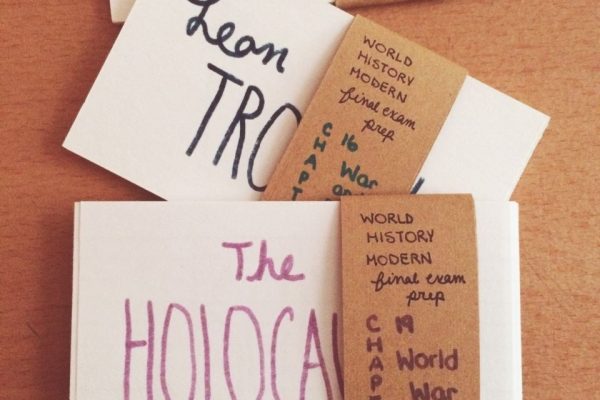 Leon
TRO
WORLD
HISTORY
MODERN
final exam
prep
CHAPT
16
War
The
HOLOCA
WORLD
HISTORY
MODERN
final exam
prep
CHAPT
19
World
War